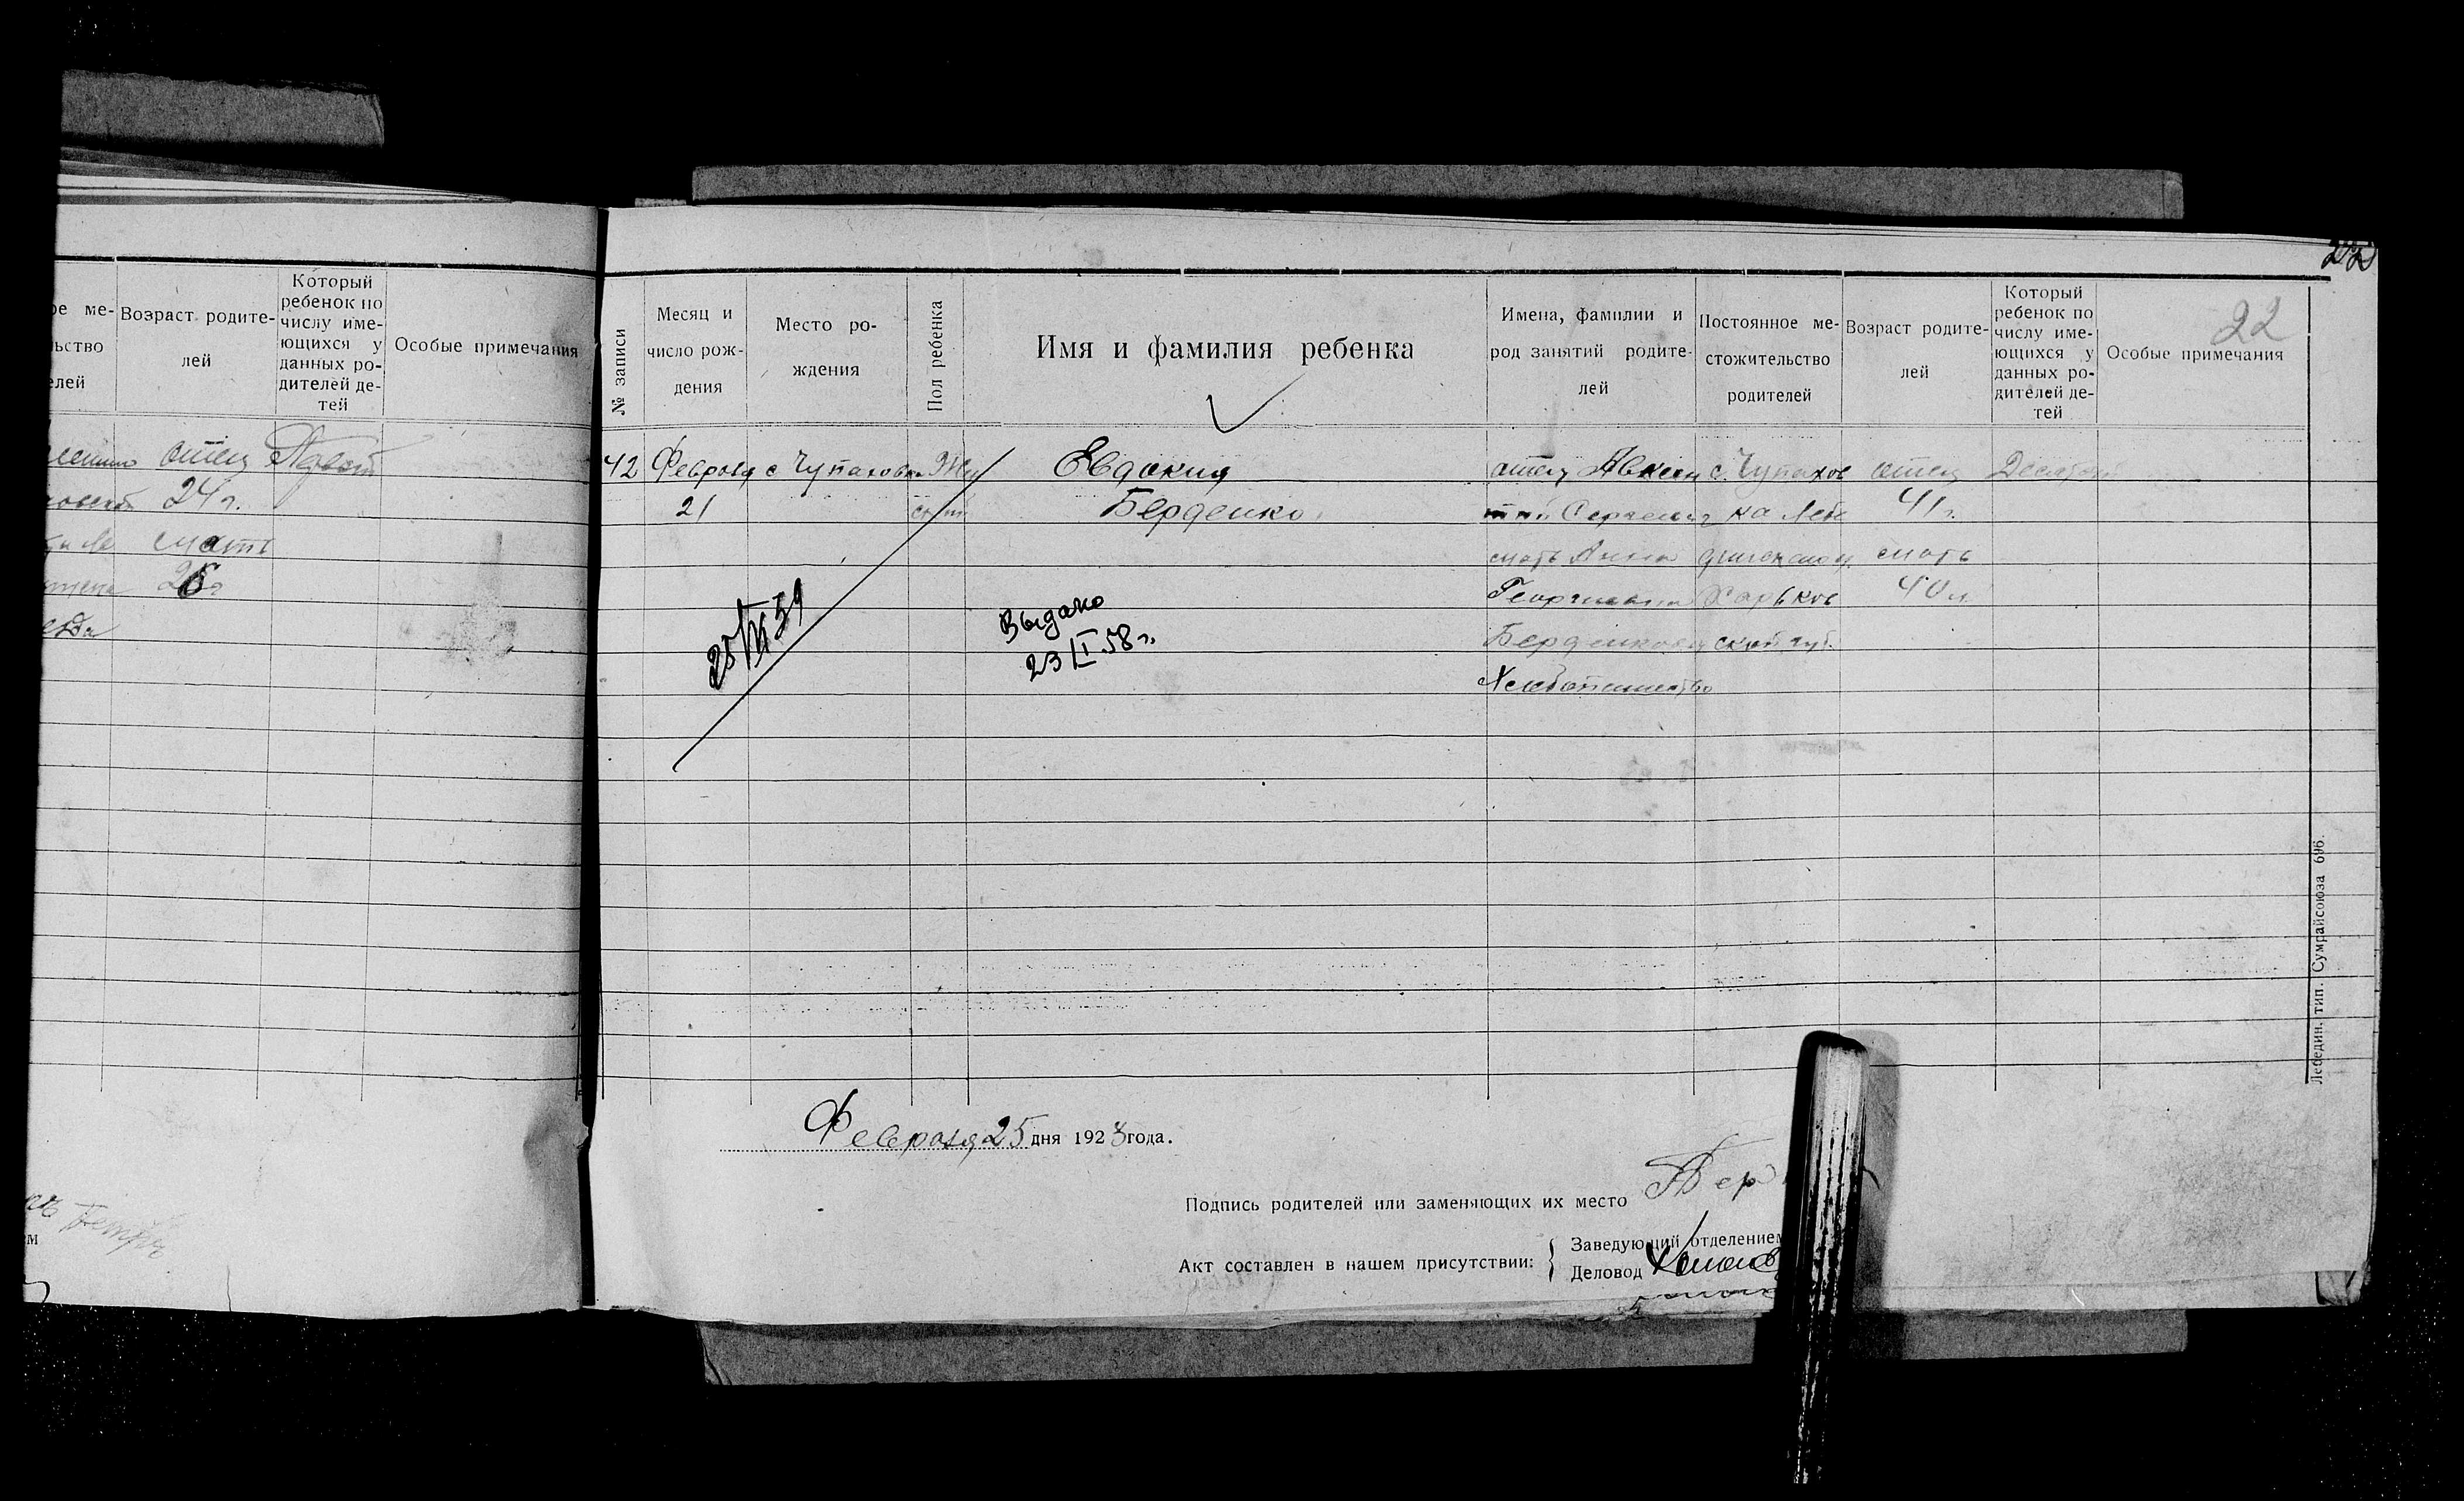 Возраст родите-
лей
Который
ребенок по
числу име-
ющихся у
данных ро-
дителей де-
тей
Особые примечания
отец
24 г.
мать
22
№ записи
Месяц и
число рож-
дения
Место ро-
ждения
Пол ребенка
Имя и фамилия ребенка
Имена, фамилии и
род занятий родите-
лей
Постоянное ме-
стожительство
родителей
Возраст родите-
лей
Который
ребенок по
числу име-
ющихся у
данных ро-
дителей де-
тей
Особые примечания
42
Февраля
21
с Чупаховка
Евдокия
Берденко
отец Авксен
тий Сергеевич
мать Анна
Георгиевна
Берденковы
Хлебопашество
с. Чупахов
ка Леб
Харьков
ской губ.
отец
41 г.
мать
40 л.
Десятый
Выдано
23/I 58 г.
Февраля 25 дня 1923 года.
Подпись родителей или заменяющих их место
Бер
Акт составлен в нашем присутствии:
Заведующий отделением
Деловод
Лебедин. тип. Сумрайсоюза 696.